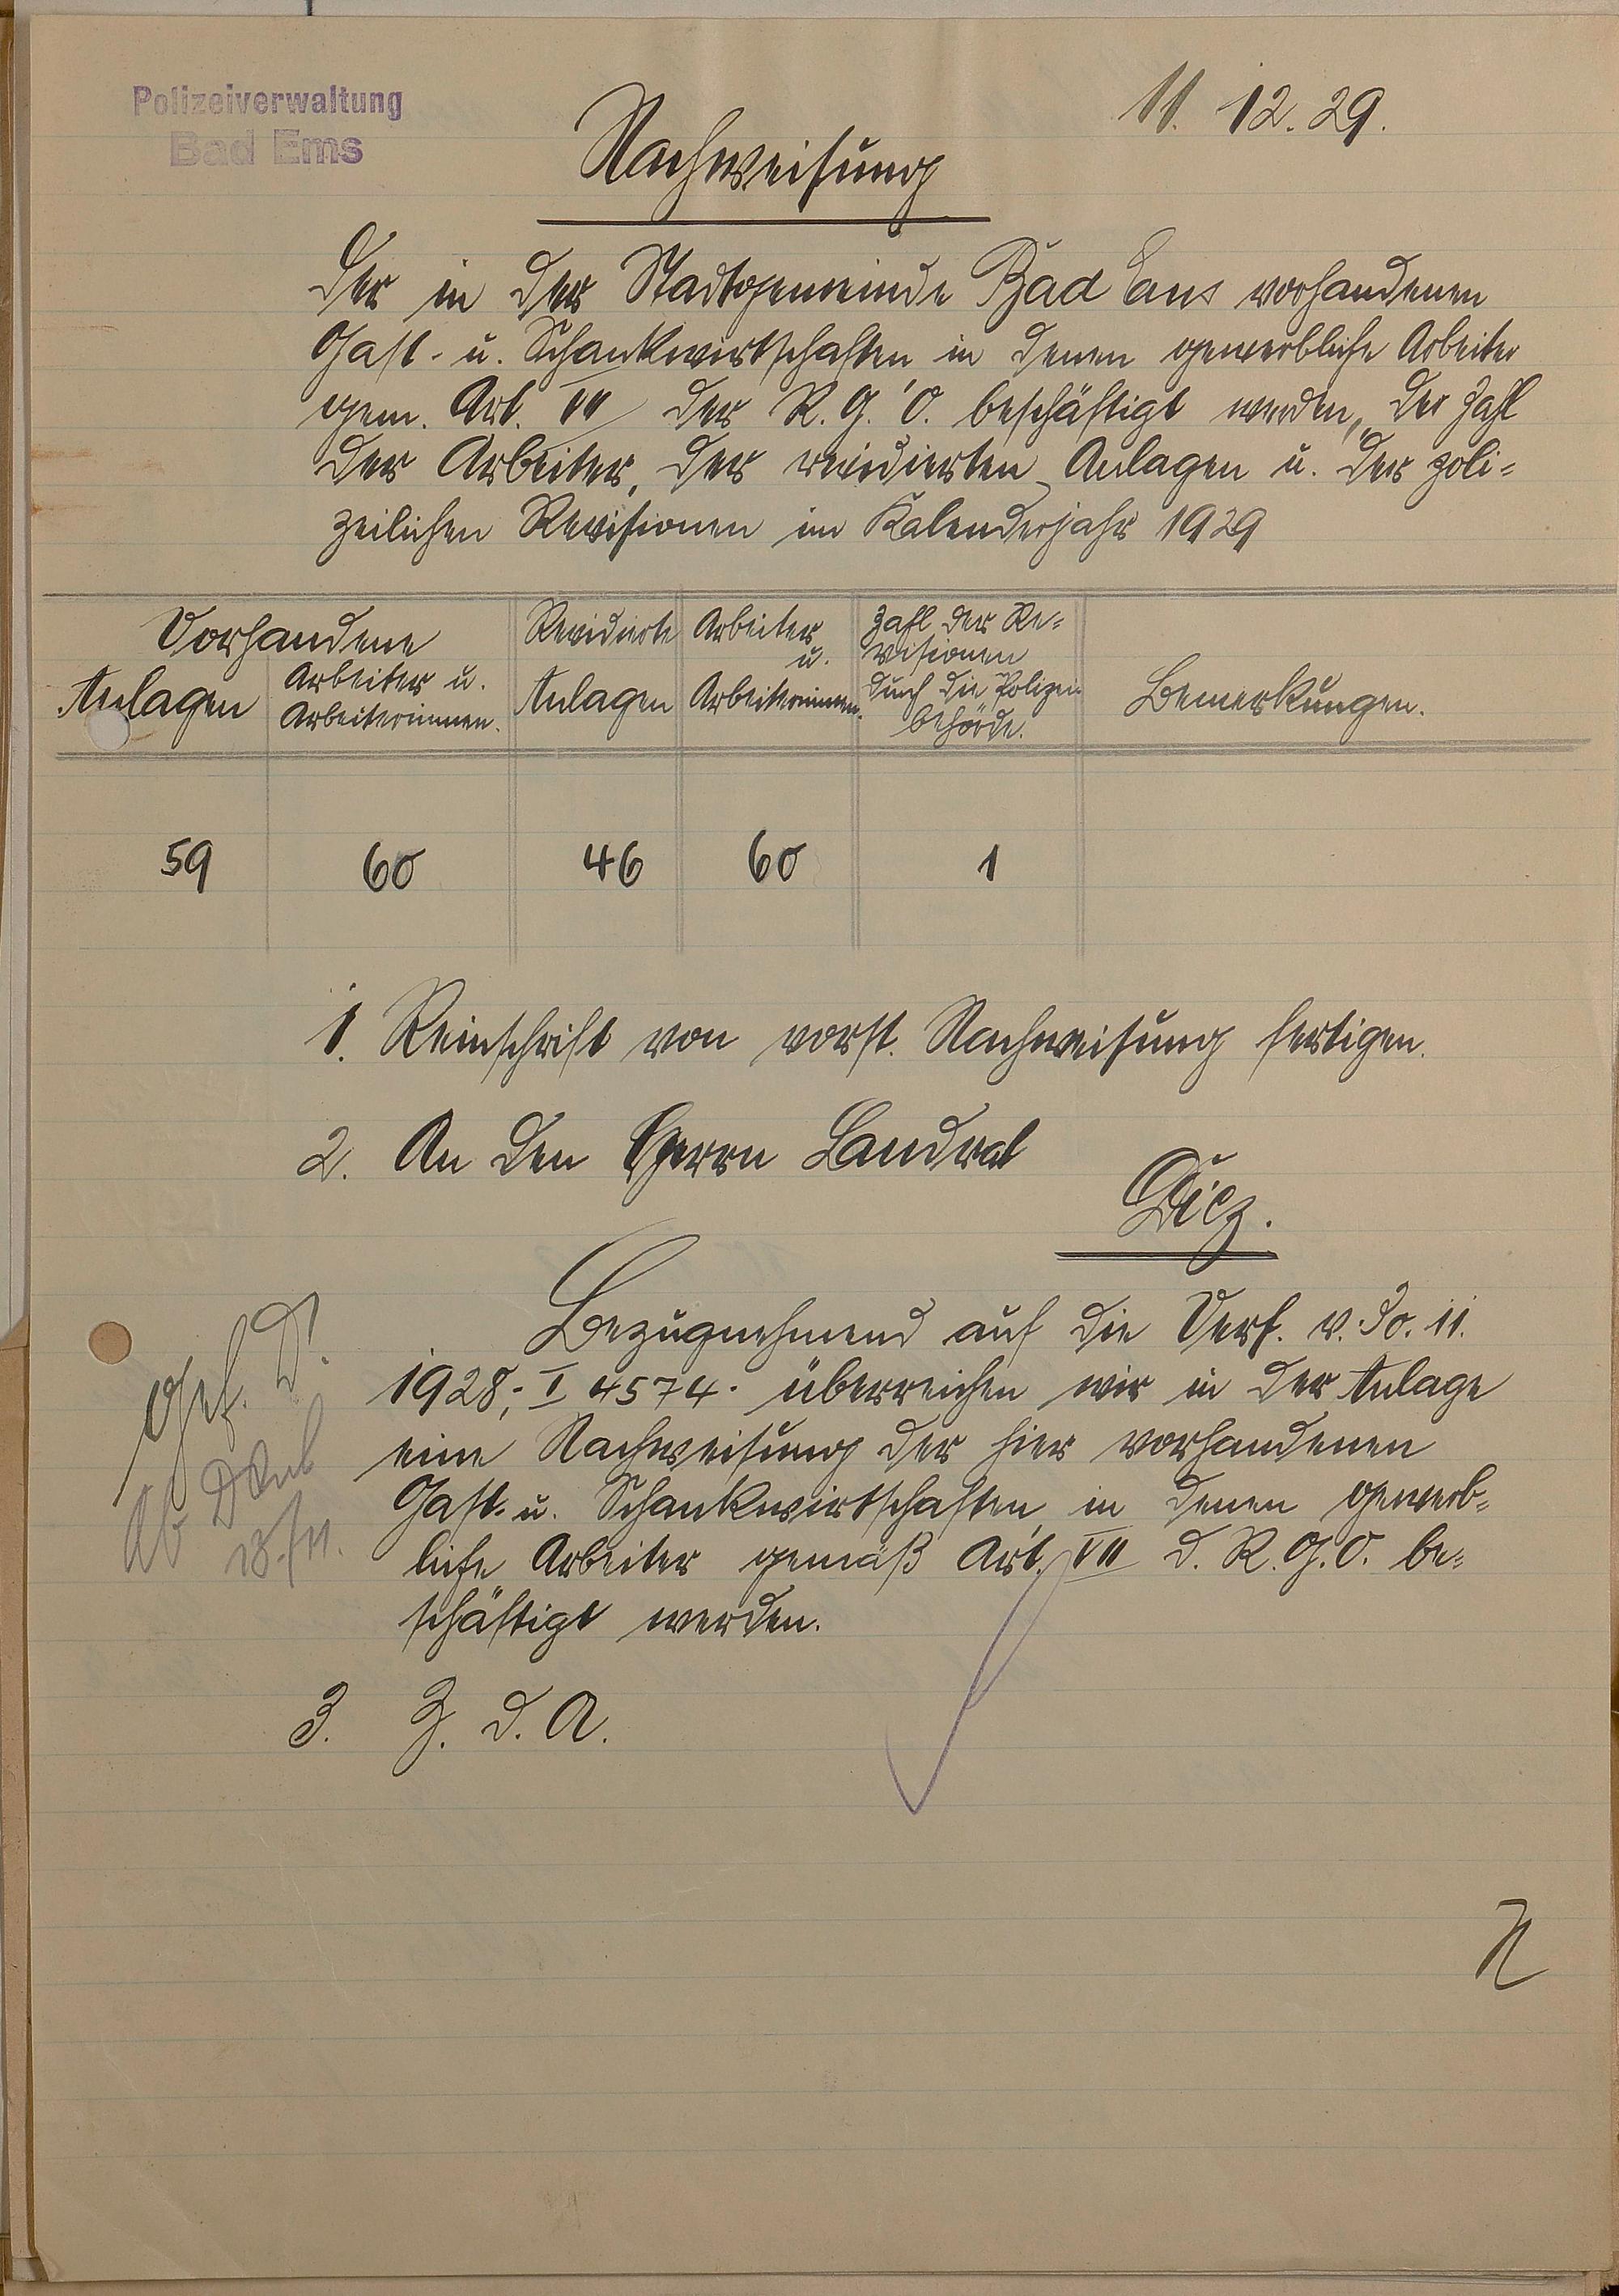 Polizeiverwaltung
Bad Ems
11. 12. 29.
Nachweisung
der in der Stadtgemeinde Bad Ems vorhandenen
Gast- u. Schankwirtschaften in denen gewerbliche Arbeiter
gem. Art. VII der R. G. O. beschäftigt werden, der Zahl
der Arbeiter, der revidierten Anlagen u. der poli=
zeilichen Revisionen im Kalenderjahr 1929
Vorhandene
Anlagen
Arbeiter u.
Arbeiterinnen.
Revidierte
Anlagen
Arbeiter
u.
Arbeiterinnen.
Zahl der Re=
visionen
durch die Polizei
behörde.
Bemerkungen.
59 60 46 60 1
1. Reinschrift von vorst. Nachweisung fertigen.
2. An den Herrn Landrat
Diez.
Bezugnehmend auf die Verf. v. 30. 11.
1928, - I 4574 - überreichen wir in der Anlage
eine Nachweisung der hier vorhandenen
Gast- u. Schankwirtschaften, in denen gewerb=
liche Arbeiter gemäß Art. VII d. R. G. O. be=
schäftigt werden.
gef. D.
Ab
3. Z. d. A.